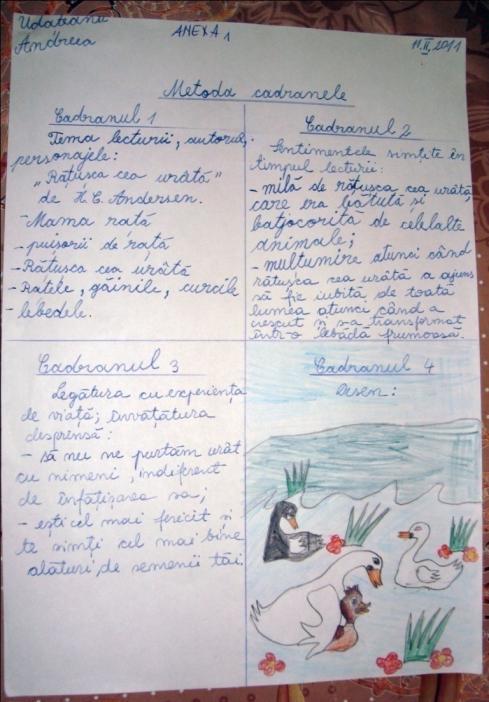 Udateanu
Andreea
ANEXA 1
11.II.2011
Metoda cadranele
Cadranul 1
Tema lecturii, autorul,
personajele:
„Rățușca cea urâtă"
de H.C. Andersen.
-Mama rată
-puișorii de rață
-Rătușca cea urâtă
-Ratele, găinile, curcile
-lebedele.
Cadranul 2
Sentimentele simțite în
timpul lecturii:
-milă de rățușca cea urâtă,
care era bătută și
batjocorită de celelalte
animale;
-multumire atunci când
rătușca cea urâtă a ajuns
să fie iubită de toată
lumea atunci când a
crescut și s-a transformat
într-o lebădă frumoasă.
Cadranul 3
Legătura cu experiența
de viață; învățătura
desprinsă:
- să nu ne purtăm urât
cu nimeni, indiferent
de înfățișarea sa;
- ești cel mai fericit și
te simți cel mai bine
alături de semenii tăi.
Cadranul 4
Desen: